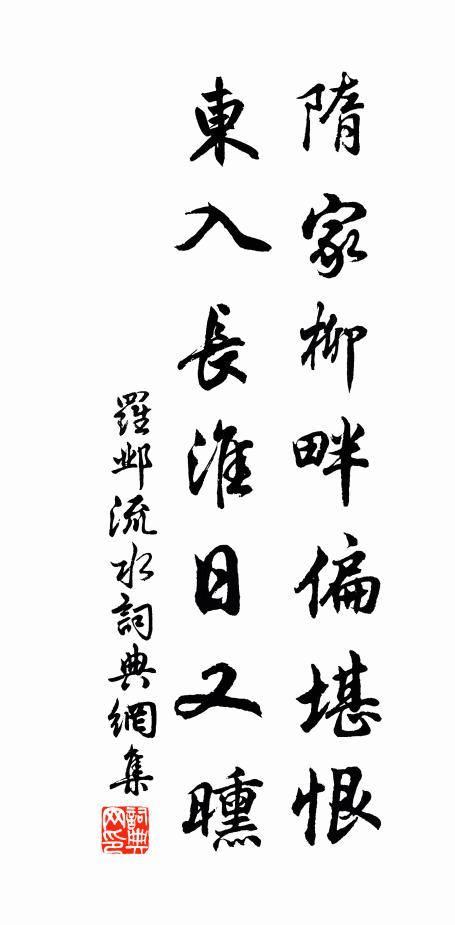 隋家柳畔偏堪恨
東入長淮日又曛
羅鄴流水詞典網集
詞典網印